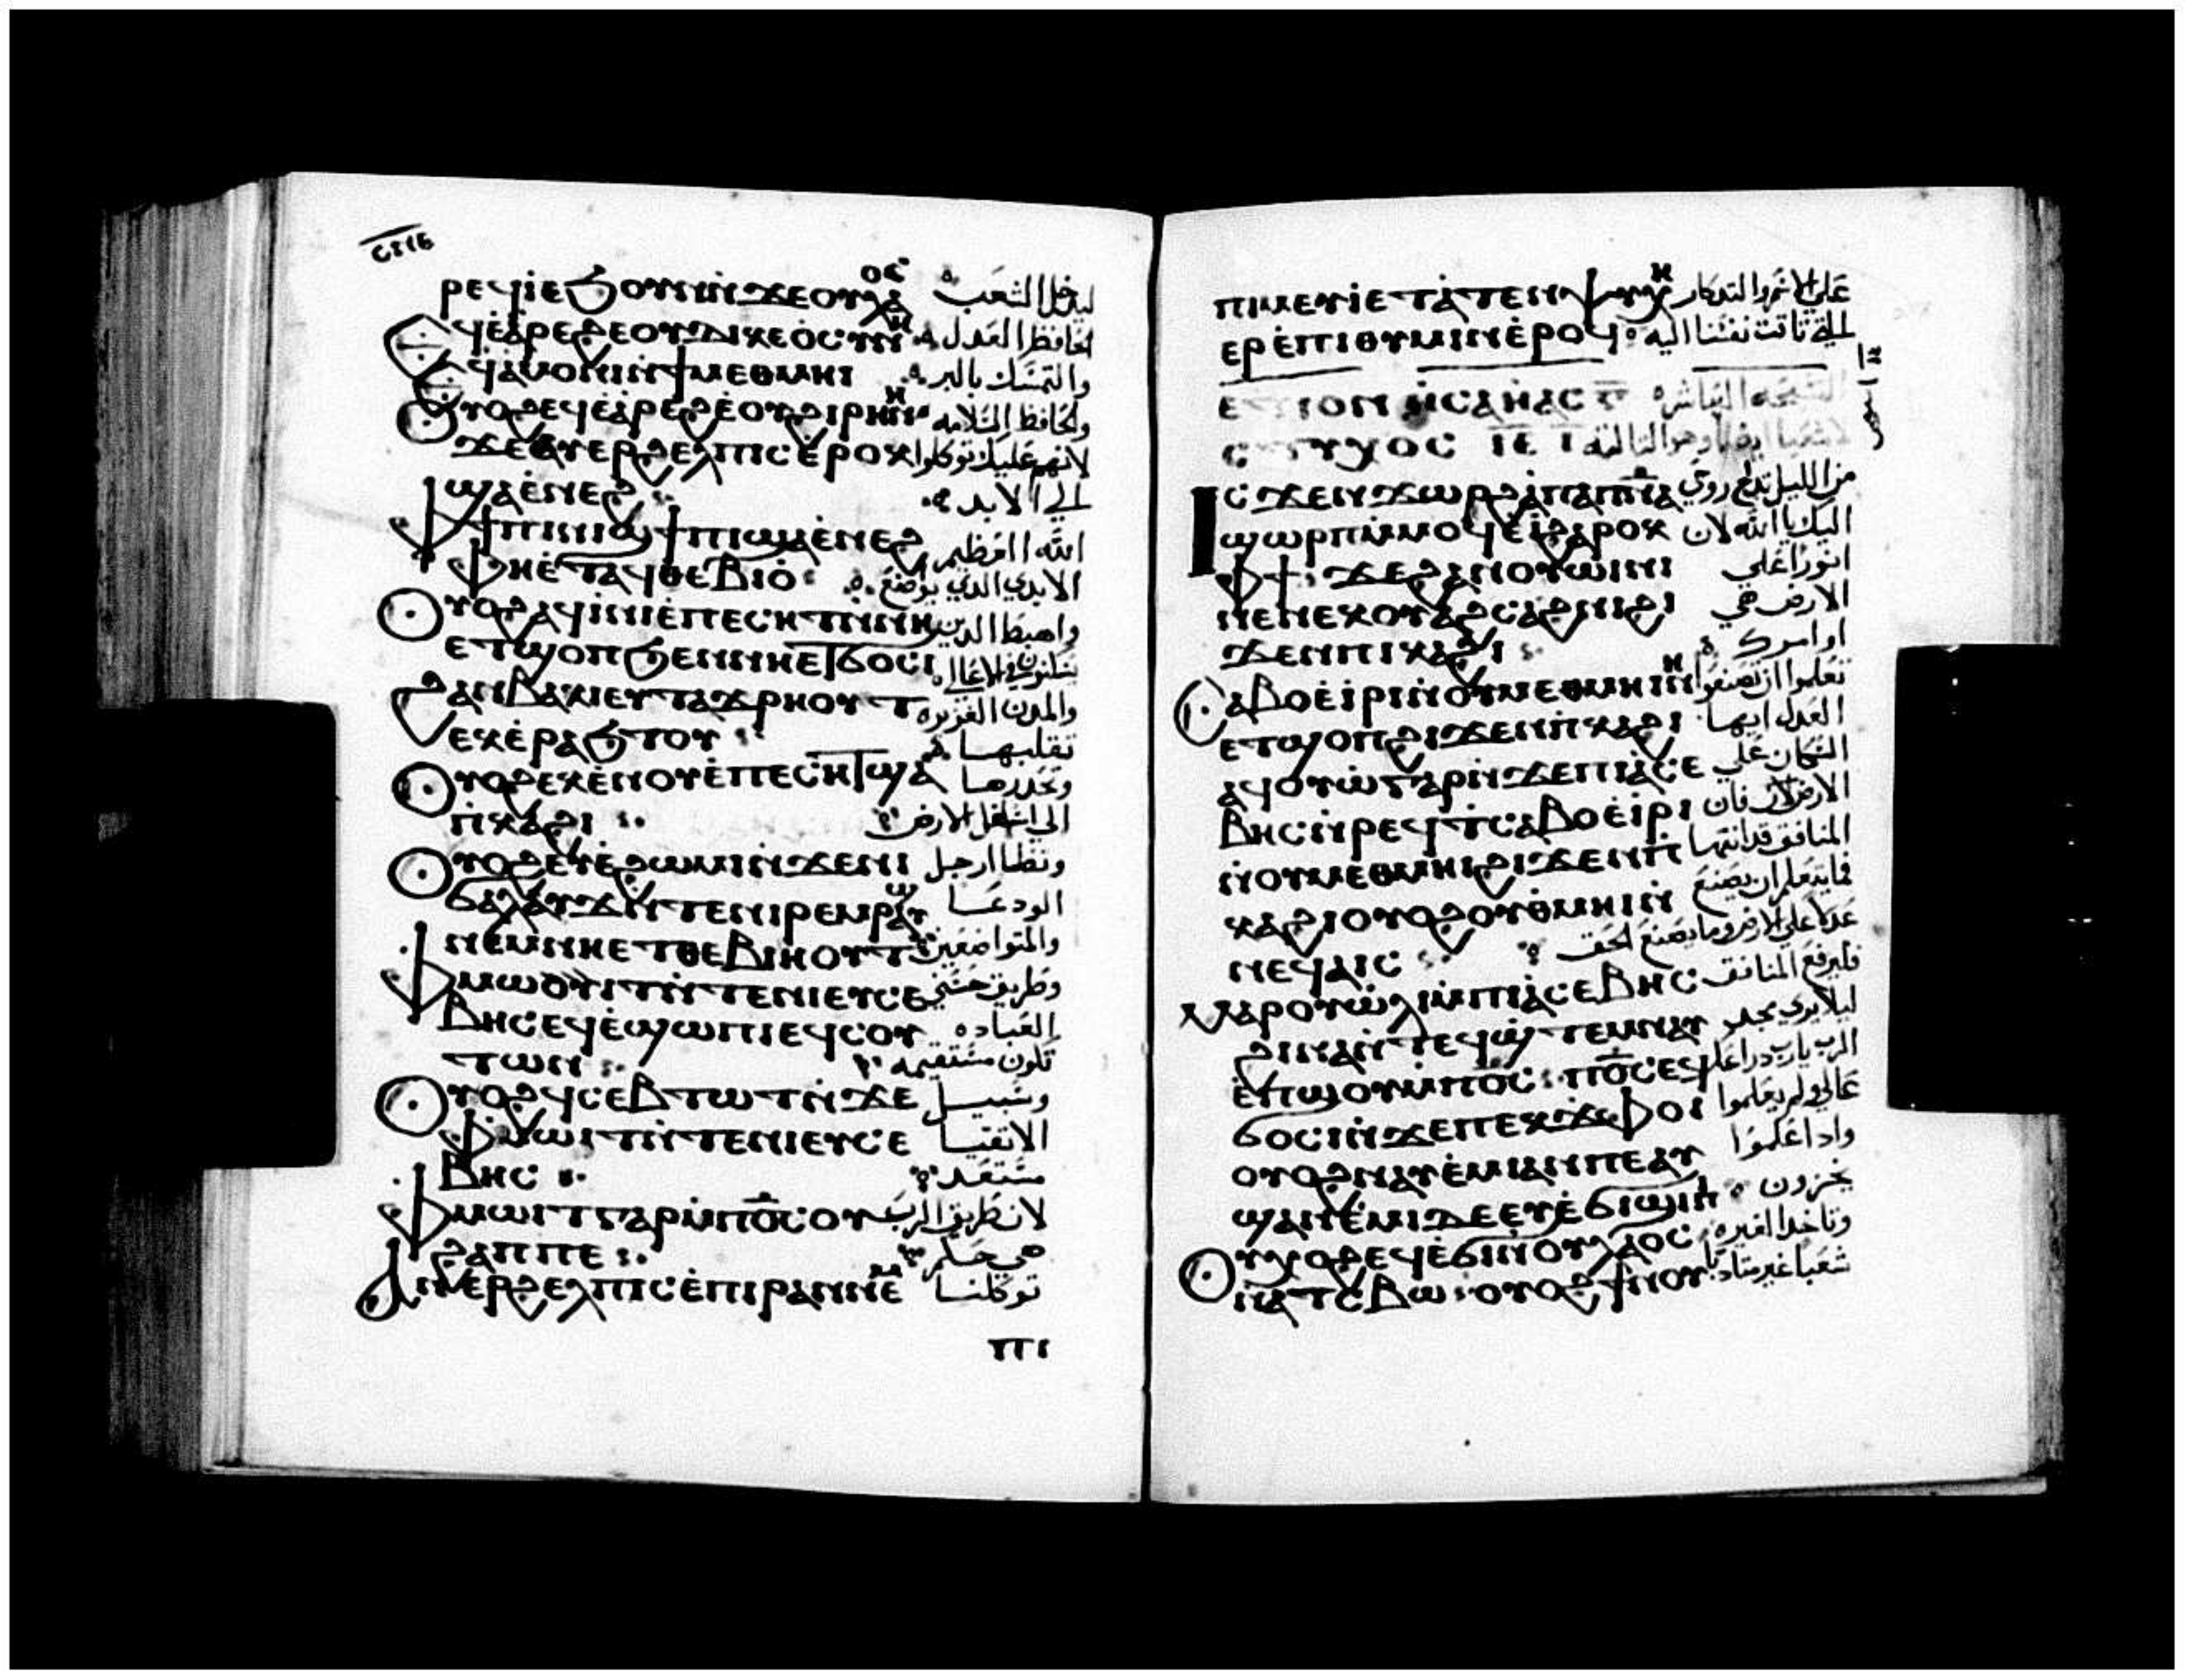 ⲣⲉϥⲓ̇ⲉϧⲟⲩⲛⲛ̇ϫⲉⲟⲩⲗⲁⲟⲥ ليدخل الشعب
ϥⲉ̇ⲁ̇ⲣⲉϩⲉⲟⲩⲇⲓⲕⲉⲟ̇ⲥⲩⲛⲏ الحافظ العدل
ϥⲁ̇ⲙⲟⲛⲓⲛ̇ϯⲙⲉⲑⲙⲏⲓ والتمسك بالبر
ⲟⲩⲟϩⲉϥⲉ̇ⲁ̇ⲣⲉϩⲉ̇ⲟⲩϩⲓⲣⲏⲛⲏ والحافظ السلامه
ϫⲉⲉⲩⲉⲣϩⲉⲗⲡⲓⲥⲉ̇ⲣⲟⲕ لانهم عليك توكلوا
ϣⲁⲉ̇ⲛⲉϩ الي الابد
ⲫϯⲡⲓⲛⲓϣϯⲡⲓϣⲁⲉ̇ⲛⲉϩ الله العظيم
ⲫⲏⲉ̇ⲧⲁϥⲑⲉⲃⲓⲟ̇ الابدي الدي يواضع
ⲟⲩⲟϩⲁϥⲓ̇ⲛⲓⲉ̇ⲡⲉⲥⲏⲧⲛ̇ⲛⲏ واهبط الدين
ⲉⲧϣⲟⲡϧⲉⲛⲛⲏⲉⲧϭⲟⲥⲓ يسكنون في الاعالي
ϩⲁⲛⲃⲁⲕⲓⲉⲩⲧⲁϫⲣⲏⲟⲩⲧ والمدن العزيزه
ⲉⲕⲉ̇ⲣⲁϧⲧⲟⲩ تقلبها
ⲟⲩⲟϩⲉⲕⲉ̇ⲛⲟⲩⲉ̇ⲡⲉⲥⲏⲧϣⲁ وتحدرها
ⲡ̇ⲕⲁϩⲓ الي اسفل الارض
ⲟⲩⲟϩⲉⲩⲉ̇ϩⲱⲙⲓⲛ̇ϫⲉⲛⲓ وتطا ارجل
ϭⲁⲗⲁⲩϫⲛ̇ⲧⲉⲛⲓⲣⲉⲙⲣⲁⲩϣ الودعا
ⲛⲉⲙⲛⲏⲉⲧⲑⲉⲃⲓⲏⲟⲩⲧ والمتواضعين
ⲫⲙⲱⲟⲩⲓⲧⲛ̇ⲧⲉⲛⲓⲉⲩⲥⲉ وطريق حسني
ⲃⲏⲥⲉϥⲉ̇ϣⲱⲡⲓⲉϥⲥⲟⲩ العباده
ⲧⲱⲛ تكون مستقيمه
ⲟⲩⲟϩϥⲥⲉⲃⲧⲱⲧⲛ̇ϫⲉ وسبيل
ⲫⲙⲱⲓⲧⲛ̇ⲧⲉⲛⲓⲉⲩⲥⲉ الاتقيا
ⲃⲏⲥ مستعد
ⲫⲙⲱⲓⲧⲅⲁⲣⲙ̇ⲡⲟ̄ⲥⲟⲩ لان طريق الرب
ϩⲁⲡⲡⲉ هي حكم
ⲁⲛⲉⲣϩⲉⲗⲡⲓⲥⲉ̇ⲡⲓⲣⲁⲛⲛⲉⲙ توكلنا
ⲡⲓ
ⲡⲓⲙⲉⲩⲓ̇ⲉⲧⲁ̇ⲧⲉⲛⲯⲩⲭⲏ علي الاسم والتدكار
ⲉⲣⲉ̇ⲡⲓⲑⲩⲙⲓⲛⲉ̇ⲣⲟϥ التي تاقت نفسنا اليه
التسبحه العاشره
من الليل
ϣⲱⲣⲡⲙ̇ⲙⲟϥⲉ̇ϩⲁⲣⲟⲕ اليك يا الله لان
ⲫϯ ϫⲉϩⲁⲛⲟⲩⲱⲓⲛⲓ انورا علي
ⲛⲉⲛⲉⲕⲟⲩⲁϩⲥⲁϩⲛⲓϩⲓ الارض هي
ϫⲉⲛⲡⲓⲕⲁϩⲓ اوامرك
ⲥⲁⲃⲟⲉ̇ⲓ̇ⲣⲓⲛ̇ⲟⲩⲙⲉⲑⲙⲏⲓⲛⲏ تعلموا ان تصنعوا
ⲉⲧϣⲟⲡϩⲓϫⲉⲛⲡ̇ⲕⲁϩⲓ العدل ايها
ⲁϥⲟⲩⲱ̇ⲅⲁⲣⲛ̇ϫⲉⲡⲓⲁ̇ⲥⲉ السكان علي
ⲃⲏⲥⲛ̇ⲣⲉϥϯⲥⲁⲃⲟⲉ̇ⲓ̇ⲣⲓ الارض لان فان
ⲛ̇ⲟⲩⲙⲉⲑⲙⲏⲓϩⲓϫⲉⲛⲡ̇ المنافق قد انتها
ⲕⲁϩⲓⲟⲩⲟϩⲟⲩⲑⲙⲏⲓⲛ̇ فما يتعلم ان يصنع
ⲛⲉϥⲁⲓⲥ عدلا علي الارض وما يصنع الحق
ⲙⲁⲣⲟⲩⲱ̇ⲗⲓⲙ̇ⲡⲓⲁ̇ⲥⲉⲃⲏⲥ فليرفع المنافق
ϩⲓⲛⲁⲛ̇ⲧⲉϥϣ̇ⲧⲉⲙⲛⲁⲩ ليلا يري مجد
ⲉ̇ⲡⲱ̇ⲟⲩⲙ̇ⲡⲟ̄ⲥ ⲡⲟ̄ⲥⲉϥ الرب يا رب دراعك
ϭⲟⲥⲓⲛ̇ϫⲉⲡⲉⲕϫⲫⲟⲓ عالي ولم يعلموا
ⲟⲩⲟϩⲛⲁⲩⲉ̇ⲙⲓⲁⲛⲡⲉⲁⲩ وادا علموا
ϣⲁⲛⲉ̇ⲙⲓⲇⲉⲉⲩⲉ̇ϭⲓϣⲓⲡⲓ يخزون
ⲟⲩⲭⲟϩⲉϥⲉ̇ϭⲓⲛ̇ⲟⲩⲗⲁⲟⲥ وتاخد الغيره
ⲛ̇ⲁⲧⲥⲃⲱ ⲟⲩⲟϩϯⲛⲟⲩ شعبا غير متادبا